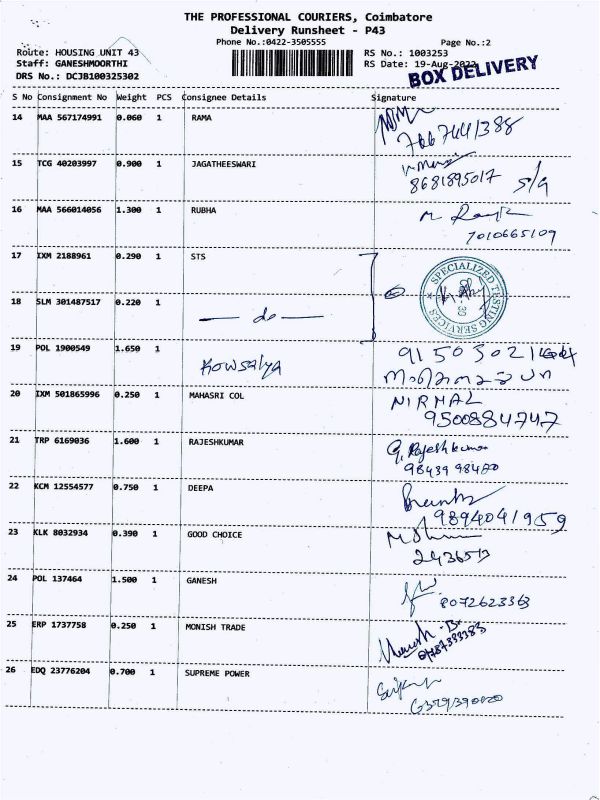 THE PROFESSIONAL COURIERS, Coimbatore
Delivery Runsheet - P43
Phone No.:0422-3505555 Page No.:2
Route: HOUSING UNIT 43 RS No.: 1003253
Staff: GANESHMOORTHI RS Date: 19-Aug-2023
DRS No.: DCJB100325302 BOX DELIVERY
S No Consignment No Weight PCS Consignee Details Signature
14 MAA 567174991 0.060 1 RAMA
15 TCG 40203997 0.900 1 JAGATHEESWARI
8681895017 S/G
16 MAA 566014056 1.300 1 RUBHA
7010665109
17 IXM 2188961 0.290 1 STS
SPECIALIZED TESTING SERVICES
18 SLM 301487517 0.220 1
— do —
19 POL 1900549 1.650 1 Kowsalya
20 IXM 501865996 0.250 1 MAHASRI COL NIRMAL
9500884747
21 TRP 6169036 1.600 1 RAJESHKUMAR G. Rajeshkumar
98439 98480
22 KCM 12554577 0.750 1 DEEPA
9894041959
23 KLK 8032934 0.390 1 GOOD CHOICE
2436513
24 POL 137464 1.500 1 GANESH
8072623363
25 ERP 1737758 0.250 1 MONISH TRADE
26 EDQ 23776204 0.700 1 SUPREME POWER